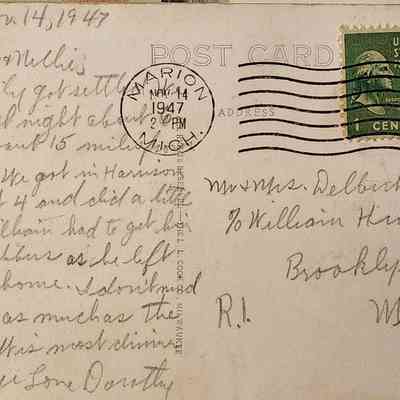 14, 1947
& Nellie,
got settle
night about
15 mile
We got in Harrison
4 and did a little
had to get his
as he left
home. I don't mind
as much as the
is most dinner
Love Dorothy
POST CARD
ADDRESS
MARION
NOV 14
1947
2 PM
MICH.
U.S.
1 CEN
Mr & Mrs. Delbert
% William Hu
Brookly
R.1.
M
L. L. COOK CO. MILWAUKEE